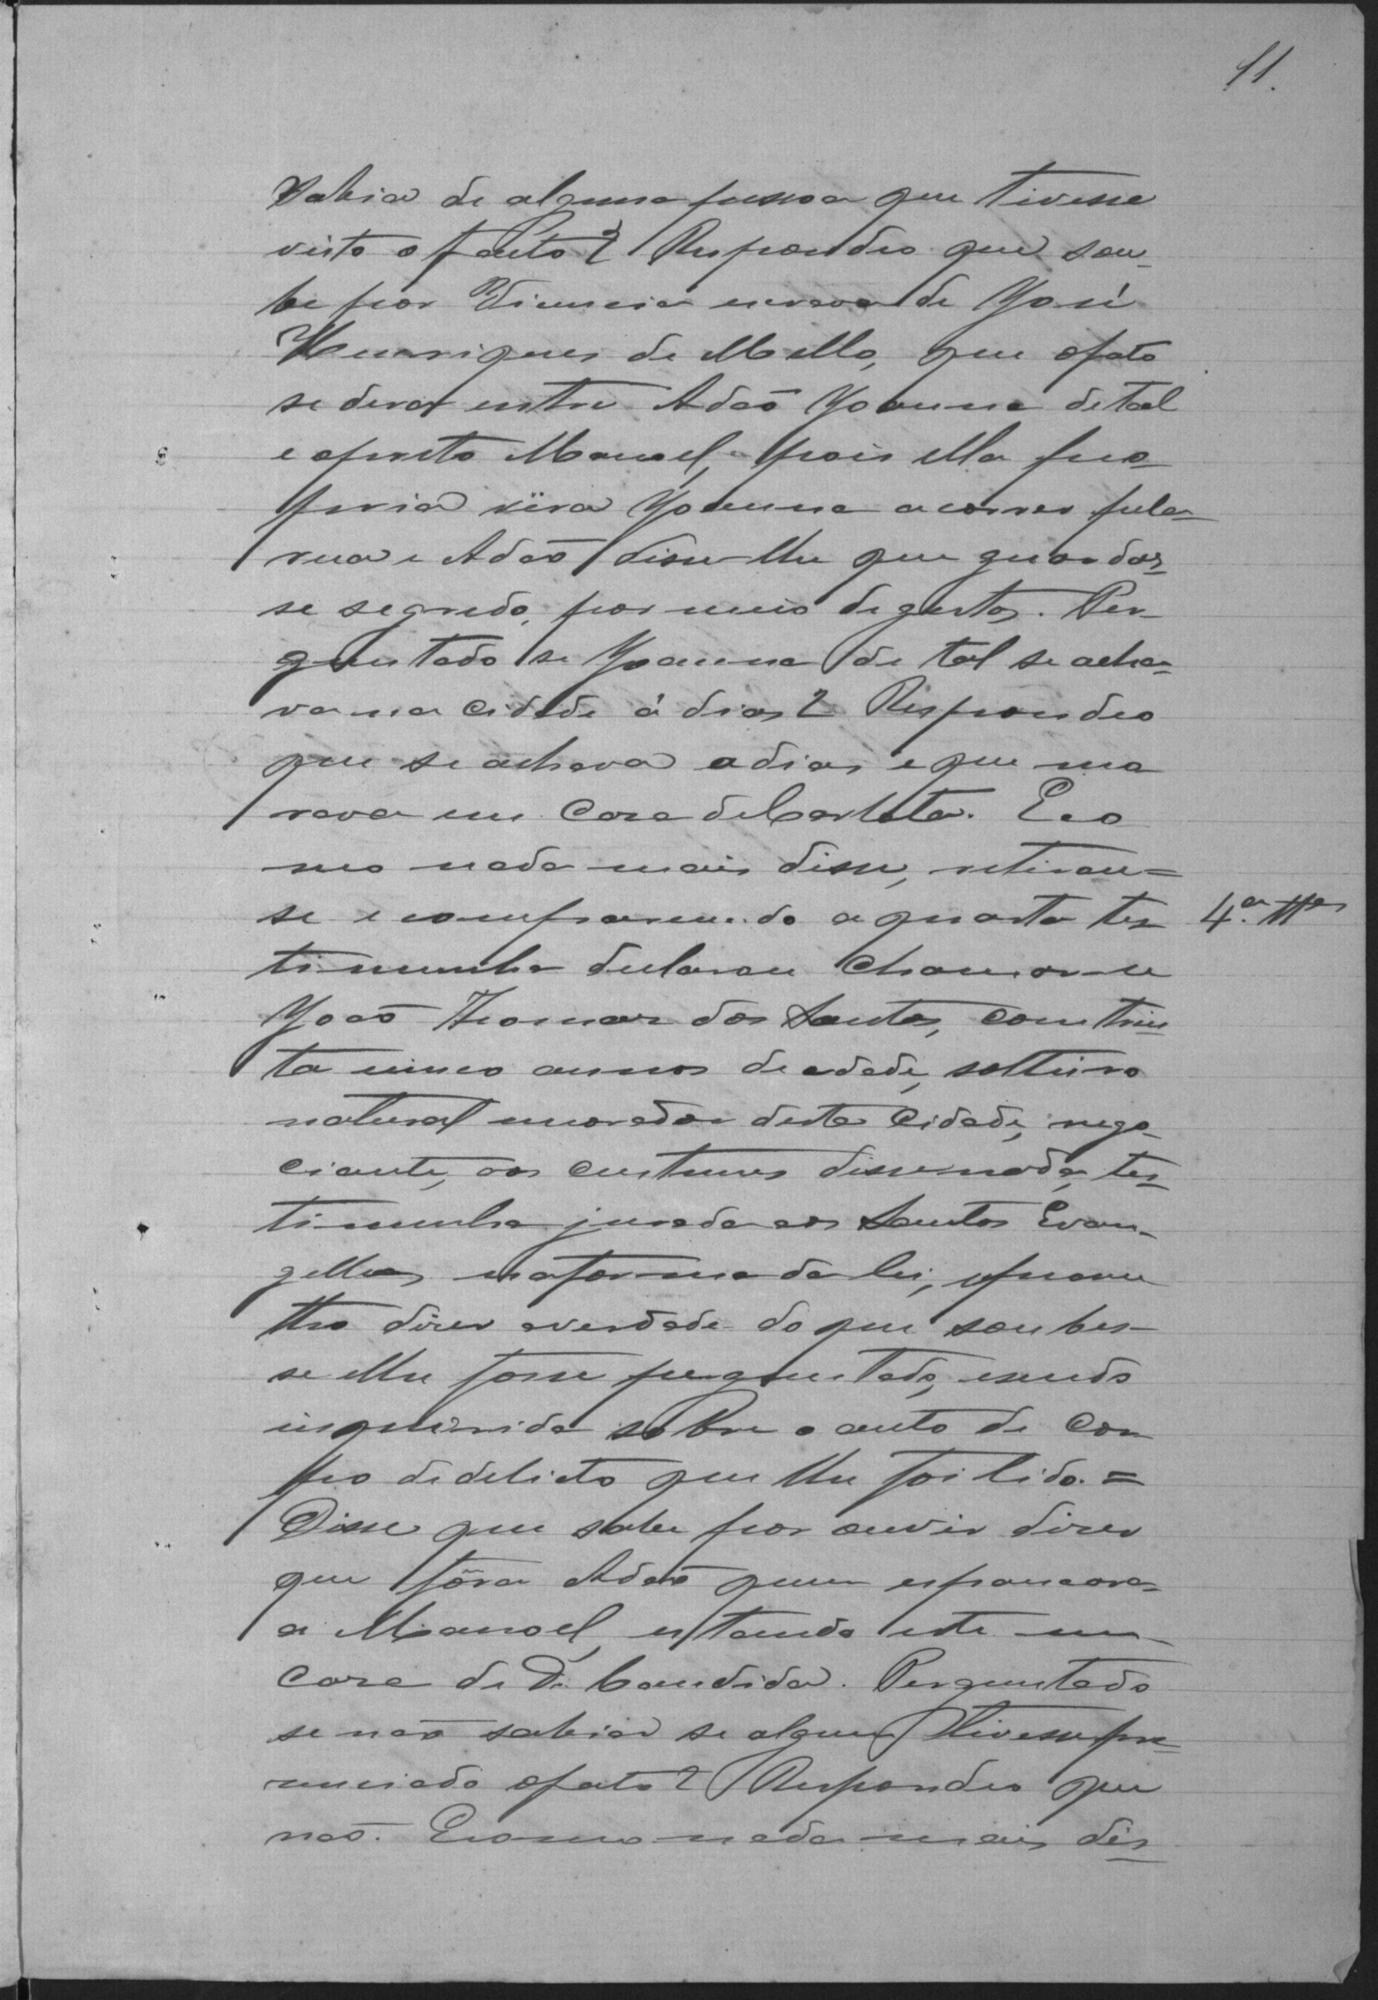 11.
Sabia de alguma pessoa que tivesse
visto o facto? Respondeo que sou-
be por escrava de José
Henriques de Mello, que ofato
sedera entre Adaõ Joanna detal
e opreto Manoel, pois ella pro-
pria víra Joanna acorrer pela
rua e Adaõ disse-lhe que guardas-
se segredo, por meio degestos. Per-
guntado se Joanna de tal se acha-
va na cidade á dias? Respondeo
que se achava adias e que mo
rava em casa deCarlota. Eco
mo nada mais disse, retirou=
se e comparecendo a quarta tes-
timunha declarou chamar-se
4.ª ttª
Joaõ Thomaz dos Santos, com trin-
ta cinco annos deedade, solteiro
natural morador desta Cidade, nego-
ciante, aos custumes dissenada, tes-
timunha jurada aos Santos Evan-
gelhos naforma da lei, eprome
tteo dizer averdade do que soubes-
se elhe fosse perguntado, esendo
inquirida sobre o auto de cor
po dedelicto que lhe foi lido. =
Disse que sabe por ouvir dizer
que fôra Adaõ quem espancara
a Manoel, estando este em
casa de D. Candida. Perguntado
se naõ sabia se alguem tivesse pre-
senciado ofato? Respondeo que
naõ. Ecomo nada mais dis-